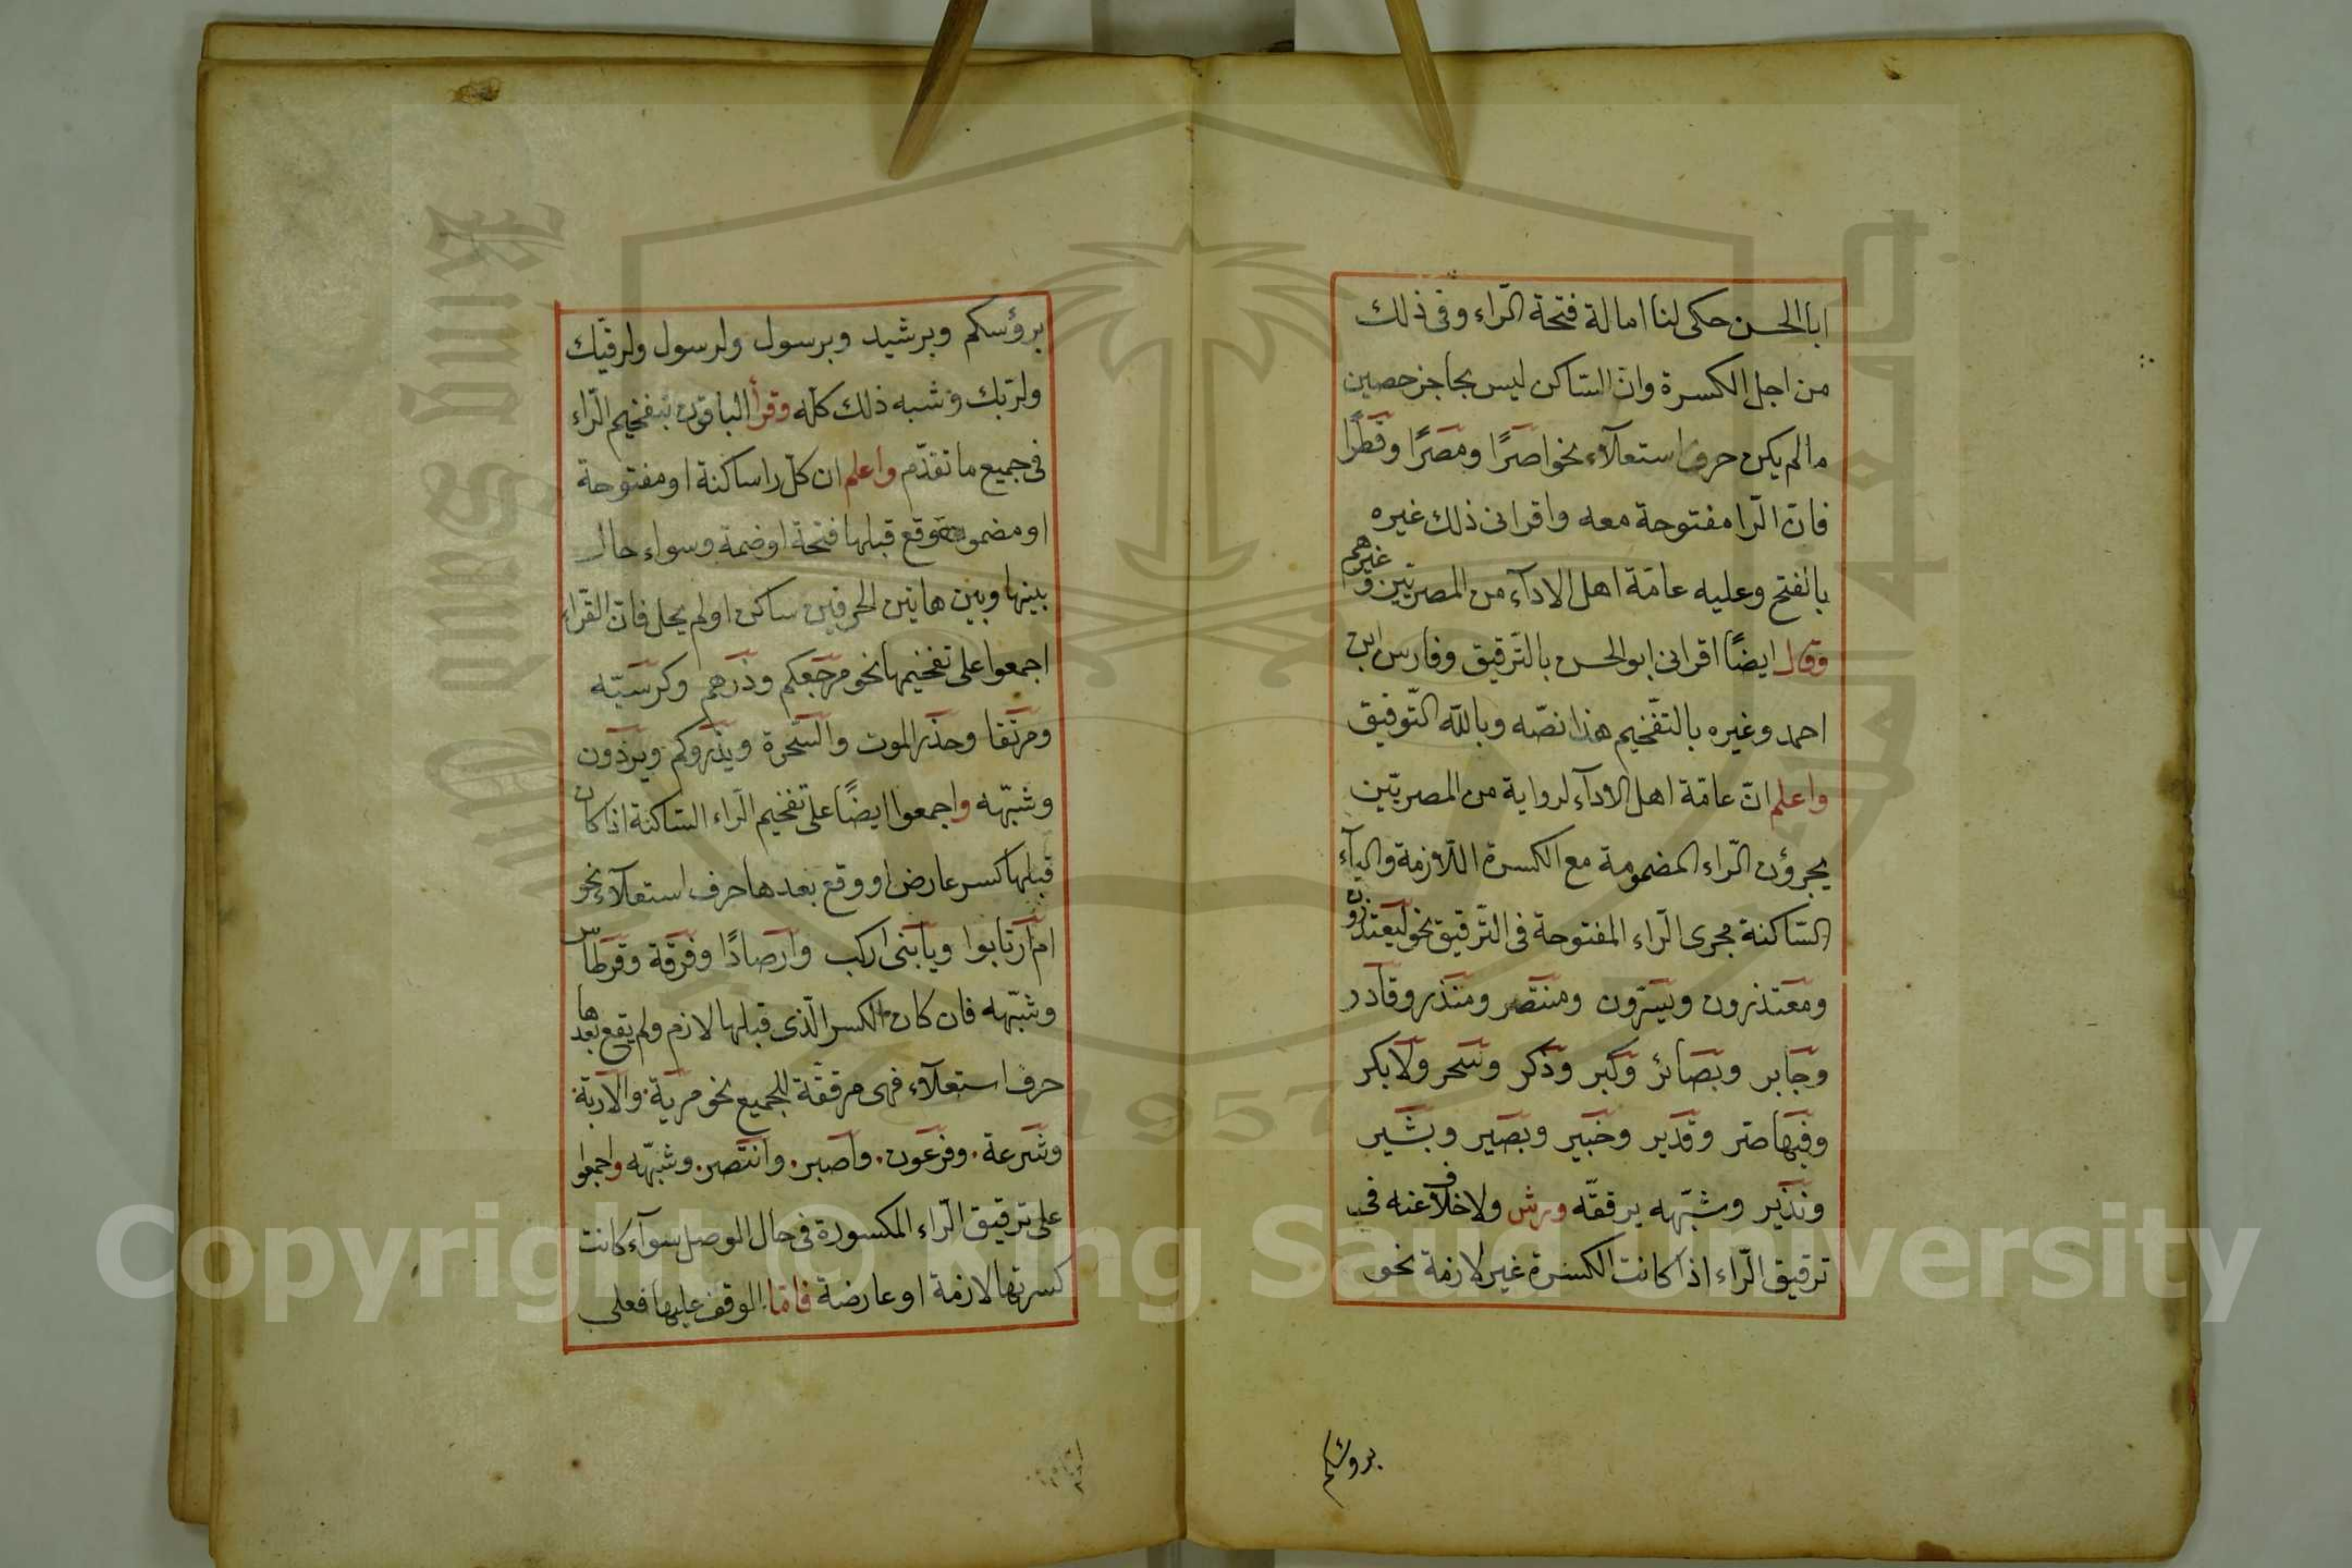 ابا الحسن حكى لنا امالة فتحة الرّاء وفى ذلك
من اجل الكسرة وانّ السّاكن ليس بحاجز حصين
مالم يكن حرف استعلآء نحو اصرًا ومصرًا وقطرًا
فانّ الرّا مفتوحة معه واقرانى ذلك غيره
بالفتح وعليه عامّة اهل الادآء من المصريّين وغيرهم
وقال ايضًا اقرانى ابو الحسن بالتّرقيق وفارس ابن
احمد وغيره بالتفّخيم هذا نصّه وبالله التّوفيق
واعلم انّ عامّة اهل الادآء لرواية من المصريّين
يجرؤن الرّاء المضمومة مع الكسرة اللّازمة والياء
السّاكنة مجرى الرّاء المفتوحة فى التّرقيق نحو ليعتذرون
ومعتذرون ويسّرون ومنتصر ومنذر وقادر
وجابر وبصائر وكبر وذكر وسحر ولا بكر
وفيها صر وقدير وخبير وبصير وبشير
ونذير وشبّهه يرققّه ورش ولا خلاف عنه فى
ترقيق الرّاء اذا كانت الكسرة غير لازمة نحو
برؤسكم
برؤسكم وبرشيد وبرسول ولرسول ولرقيّك
ولربّك وشبه ذلك كلّه وقرأ الباقون بتفخيم الرّاء
فى جميع ما تقدّم واعلم ان كلّ را ساكنة او مفتوحة
او مضمومة وقع قبلها فتحة او ضمة وسواء حال
بينها وبين هاتين الحرفين ساكن او لم يحل فانّ القرّاء
اجمعوا على تفخيمها نحو مرجعكم وذرهم وكرسيّه
ومرتفقا وحذر الموت والسّحرة ويذروكم ويردّون
وشبّهه واجمعوا ايضًا على تفخيم الرّاء السّاكنة اذا كان
قبلها كسر عارض او وقع بعدها حرف استعلآء نحو
ام ارتابوا ويا بنى اركب وارصادًا وفرقة وقرطاس
وشبّهه فان كان الكسر الّذى قبلها لازم ولم يقع بعدها
حرف استعلآء فهى مرققّة للجميع نحو مرية والاربة
وشرعة وفرعون واصبر وانتصر وشبّهه واجمعوا
على ترقيق الرّاء المكسورة فى حال الوصل سوآء كانت
كسرتها لازمة او عارضة فامّا الوقف عليها فعلى
Copyright © King Saud University
1957